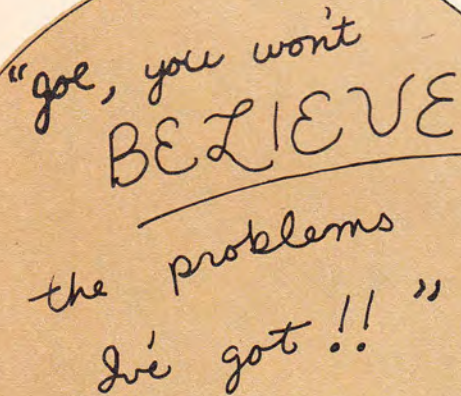 "Joe, you won't
BELIEVE
the problems
I've got!!"